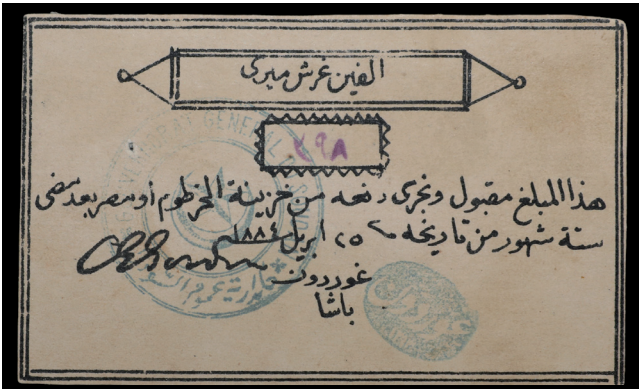 الفين غرش ميرى
هذا المبلغ مقبول ونجرى دفعه من خزينة الخرطوم أو مصر بعد مضى
ستة شهور من تاريخه ٢٥ ابريل ١٨٨٤
غوردون
باشا
GENERAL